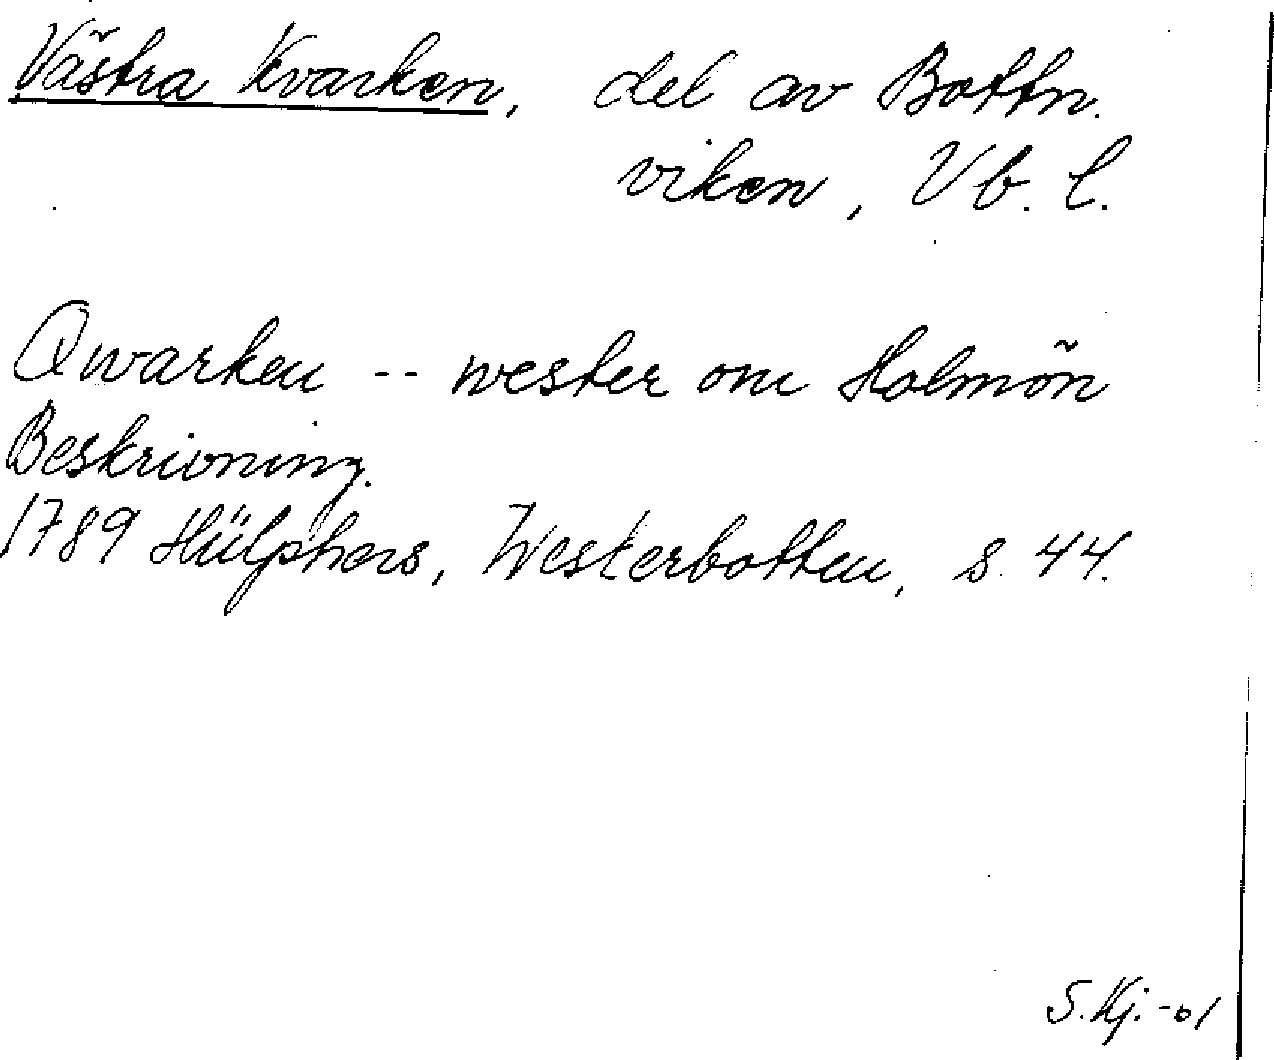 Västra Kvarken, del av Bottn.
viken, Vb. l.
Qwarken -- wester om Holmön
Beskrivning.
1789 Hülphers, Westerbotten, s. 44.
S. Kj. -01